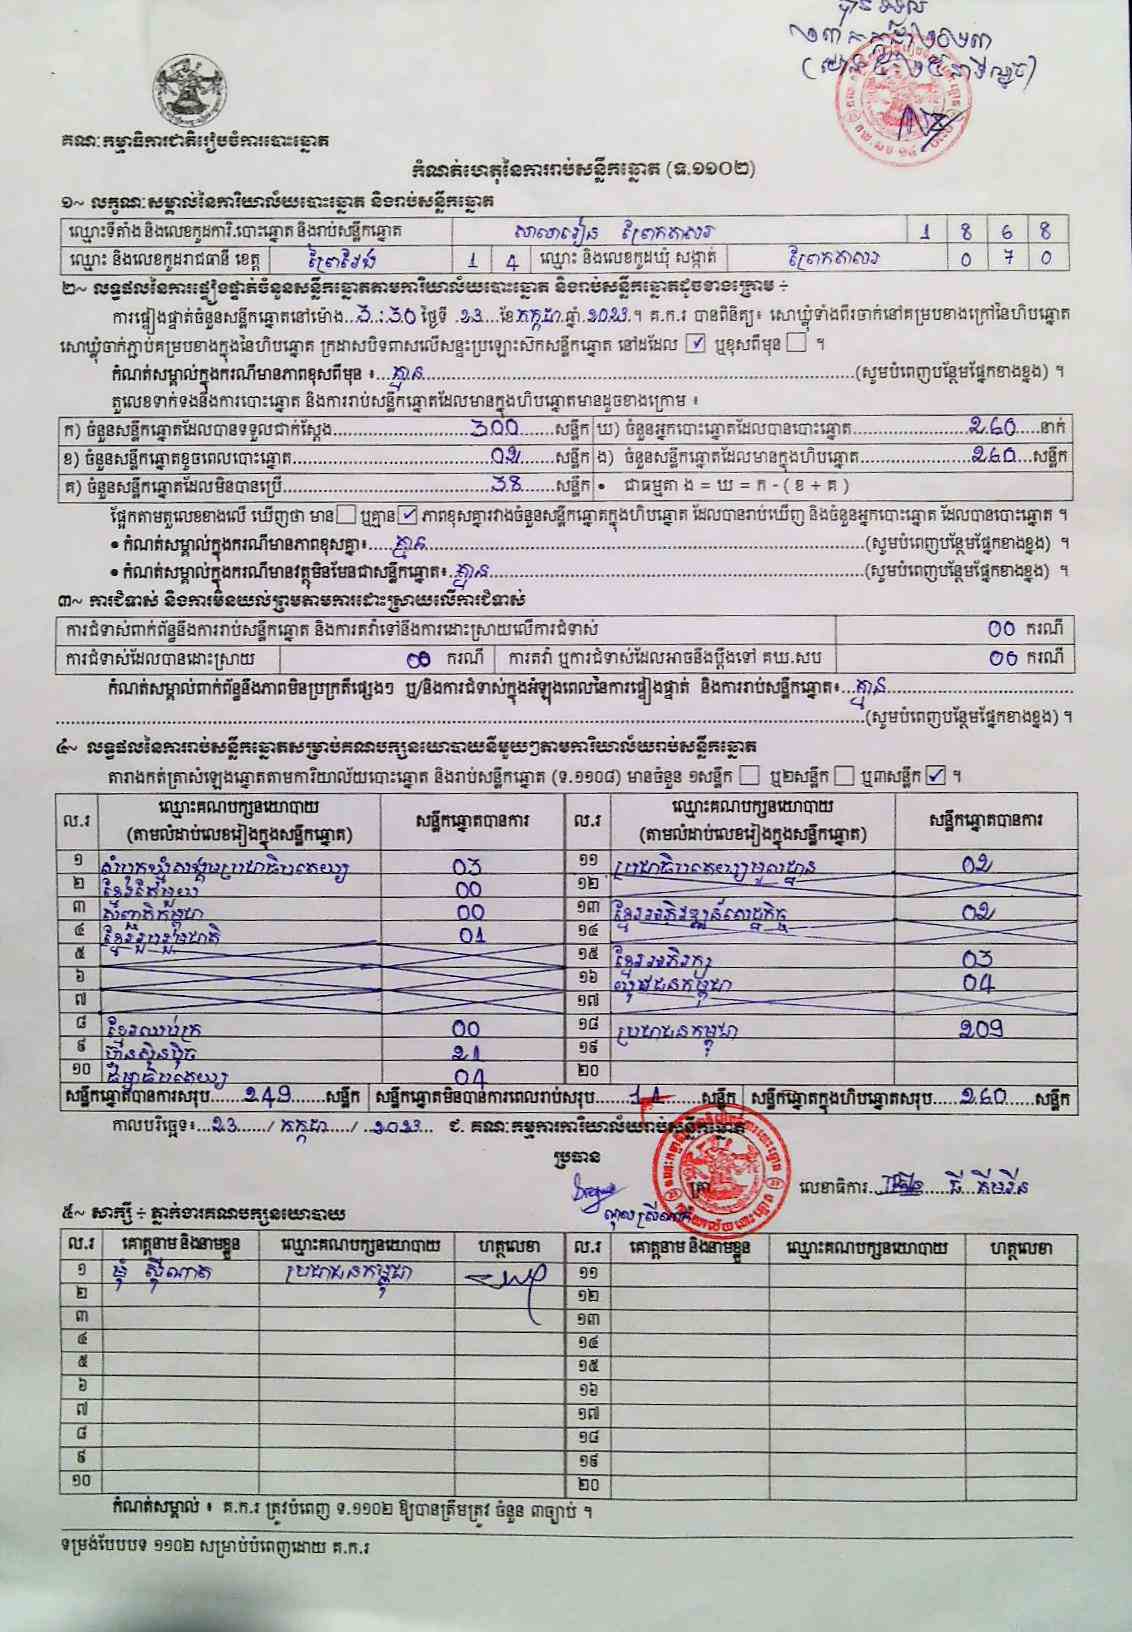 បានទទួល
២៣ កក្កដា ២០២៣
គណៈកម្មាធិការជាតិរៀបចំការបោះឆ្នោត
កំណត់ហេតុនៃការរាប់សន្លឹកឆ្នោត (ទ.១១០២)
១~ លក្ខណៈសម្គាល់នៃការិយាល័យបោះឆ្នោត និងរាប់សន្លឹកឆ្នោត
ឈ្មោះទីតាំង និងលេខកូដការិ.បោះឆ្នោត និងរាប់សន្លឹកឆ្នោត សាលារៀន ព្រែកតាសរ 1 8 6 8
ឈ្មោះ និងលេខកូដរាជធានី ខេត្ត ព្រៃវែង 1 4 ឈ្មោះ និងលេខកូដឃុំ សង្កាត់ ព្រែកតាសរ 0 7 0
២~ លទ្ធផលនៃការផ្ទៀងផ្ទាត់ចំនួនសន្លឹកឆ្នោតតាមការិយាល័យបោះឆ្នោត និងរាប់សន្លឹកឆ្នោតដូចខាងក្រោម ÷
ការផ្ទៀងផ្ទាត់ចំនួនសន្លឹកឆ្នោតនៅម៉ោង...3:30 ថ្ងៃទី .23...ខែកក្កដា.ឆ្នាំ.2023.។ គ.ក.រ បានពិនិត្យ៖ សោឃ្លុំទាំងពីរចាក់នៅគម្របខាងក្រៅនៃហិបឆ្នោត
សោឃ្លុំចាក់ភ្ជាប់គម្របខាងក្នុងនៃហិបឆ្នោត ក្រដាសបិទពាសលើសន្ទះប្រឡោះសឹកសន្លឹកឆ្នោត នៅដដែល ✓ ឬខុសពីមុន ។
កំណត់សម្គាល់ក្នុងករណីមានភាពខុសពីមុន ៖...គ្មាន...(សូមបំពេញបន្ថែមផ្នែកខាងខ្នង) ។
តួលេខទាក់ទងនឹងការបោះឆ្នោត និងការរាប់សន្លឹកឆ្នោតដែលមានក្នុងហិបឆ្នោតមានដូចខាងក្រោម ៖
ក) ចំនួនសន្លឹកឆ្នោតដែលបានទទួលជាក់ស្ដែង...300...សន្លឹក ឃ) ចំនួនអ្នកបោះឆ្នោតដែលបានបោះឆ្នោត...260...នាក់
ខ) ចំនួនសន្លឹកឆ្នោតខូចពេលបោះឆ្នោត...02...សន្លឹក ង) ចំនួនសន្លឹកឆ្នោតដែលមានក្នុងហិបឆ្នោត...260...សន្លឹក
គ) ចំនួនសន្លឹកឆ្នោតដែលមិនបានប្រើ...38...សន្លឹក • ជាធម្មតា ង = ឃ = ក - ( ខ + គ )
ផ្អែកតាមតួលេខខាងលើ ឃើញថា មាន ឬគ្មាន ✓ ភាពខុសគ្នារវាងចំនួនសន្លឹកឆ្នោតក្នុងហិបឆ្នោត ដែលបានរាប់ឃើញ និងចំនួនអ្នកបោះឆ្នោត ដែលបានបោះឆ្នោត ។
• កំណត់សម្គាល់ក្នុងករណីមានភាពខុសគ្នា៖...គ្មាន...(សូមបំពេញបន្ថែមផ្នែកខាងខ្នង) ។
• កំណត់សម្គាល់ក្នុងករណីមានវត្ថុមិនមែនជាសន្លឹកឆ្នោត៖..គ្មាន...(សូមបំពេញបន្ថែមផ្នែកខាងខ្នង) ។
៣~ ការជំទាស់ និងការមិនយល់ព្រមតាមការដោះស្រាយលើការជំទាស់
ការជំទាស់ពាក់ព័ន្ធនឹងការរាប់សន្លឹកឆ្នោត និងការតវ៉ាទៅនឹងការដោះស្រាយលើការជំទាស់ 00 ករណី
ការជំទាស់ដែលបានដោះស្រាយ 00 ករណី ការតវ៉ា ឬការជំទាស់ដែលអាចនឹងប្ដឹងទៅ គឃ.សប 00 ករណី
កំណត់សម្គាល់ពាក់ព័ន្ធនឹងភាពមិនប្រក្រតីផ្សេងៗ ឬ/និងការជំទាស់ក្នុងអំឡុងពេលនៃការផ្ទៀងផ្ទាត់ និងការរាប់សន្លឹកឆ្នោត៖...គ្មាន...
...(សូមបំពេញបន្ថែមផ្នែកខាងខ្នង) ។
៤~ លទ្ធផលនៃការរាប់សន្លឹកឆ្នោតសម្រាប់គណបក្សនយោបាយនីមួយៗតាមការិយាល័យរាប់សន្លឹកឆ្នោត
តារាងកត់ត្រាសំឡេងឆ្នោតតាមការិយាល័យបោះឆ្នោត និងរាប់សន្លឹកឆ្នោត (ទ.១១០៨) មានចំនួន ១សន្លឹក ឬ២សន្លឹក ឬ៣សន្លឹក ✓ ។
ល.រ ឈ្មោះគណបក្សនយោបាយ (តាមលំដាប់លេខរៀងក្នុងសន្លឹកឆ្នោត) សន្លឹកឆ្នោតបានការ ល.រ ឈ្មោះគណបក្សនយោបាយ (តាមលំដាប់លេខរៀងក្នុងសន្លឹកឆ្នោត) សន្លឹកឆ្នោតបានការ
១ សំបុកឃ្មុំសង្គមប្រជាធិបតេយ្យ 03 ១១ ប្រជាធិបតេយ្យមូលដ្ឋាន 02
២ ខ្មែរតែមួយ 00 ១២
៣ សញ្ជាតិកម្ពុជា 00 ១៣ ខ្មែរអភិវឌ្ឍន៍សេដ្ឋកិច្ច 02
៤ ខ្មែររួបរួមជាតិ 01 ១៤
៥ ១៥ ខ្មែរអភិរក្ស 03
៦ ១៦ យុវជនកម្ពុជា 04
៧ ១៧
៨ ខ្មែរឈប់ក្រ 00 ១៨ ប្រជាជនកម្ពុជា 209
៩ ហ៊្វុនស៊ិនប៉ិច 21 ១៩
១០ ធម្មាធិបតេយ្យ 04 ២០
សន្លឹកឆ្នោតបានការសរុប...249...សន្លឹក សន្លឹកឆ្នោតមិនបានការពេលរាប់សរុប...11...សន្លឹក សន្លឹកឆ្នោតក្នុងហិបឆ្នោតសរុប...260...សន្លឹក
កាលបរិច្ឆេទ៖...23..../ កក្កដា..../ ..2023... ជ. គណៈកម្មការការិយាល័យរាប់សន្លឹកឆ្នោត
ប្រធាន
ត្រា លេខាធិការ
៥~ សាក្សី ÷ ភ្នាក់ងារគណបក្សនយោបាយ
ល.រ គោត្តនាម និងនាមខ្លួន ឈ្មោះគណបក្សនយោបាយ ហត្ថលេខា ល.រ គោត្តនាម និងនាមខ្លួន ឈ្មោះគណបក្សនយោបាយ ហត្ថលេខា
១ ម៉ុំ ស៊ីណាត ប្រជាជនកម្ពុជា ១១
២ ១២
៣ ១៣
៤ ១៤
៥ ១៥
៦ ១៦
៧ ១៧
៨ ១៨
៩ ១៩
១០ ២០
កំណត់សម្គាល់ ៖ គ.ក.រ ត្រូវបំពេញ ទ.១១០២ ឱ្យបានត្រឹមត្រូវ ចំនួន ៣ច្បាប់ ។
ទម្រង់បែបបទ ១១០២ សម្រាប់បំពេញដោយ គ.ក.រ